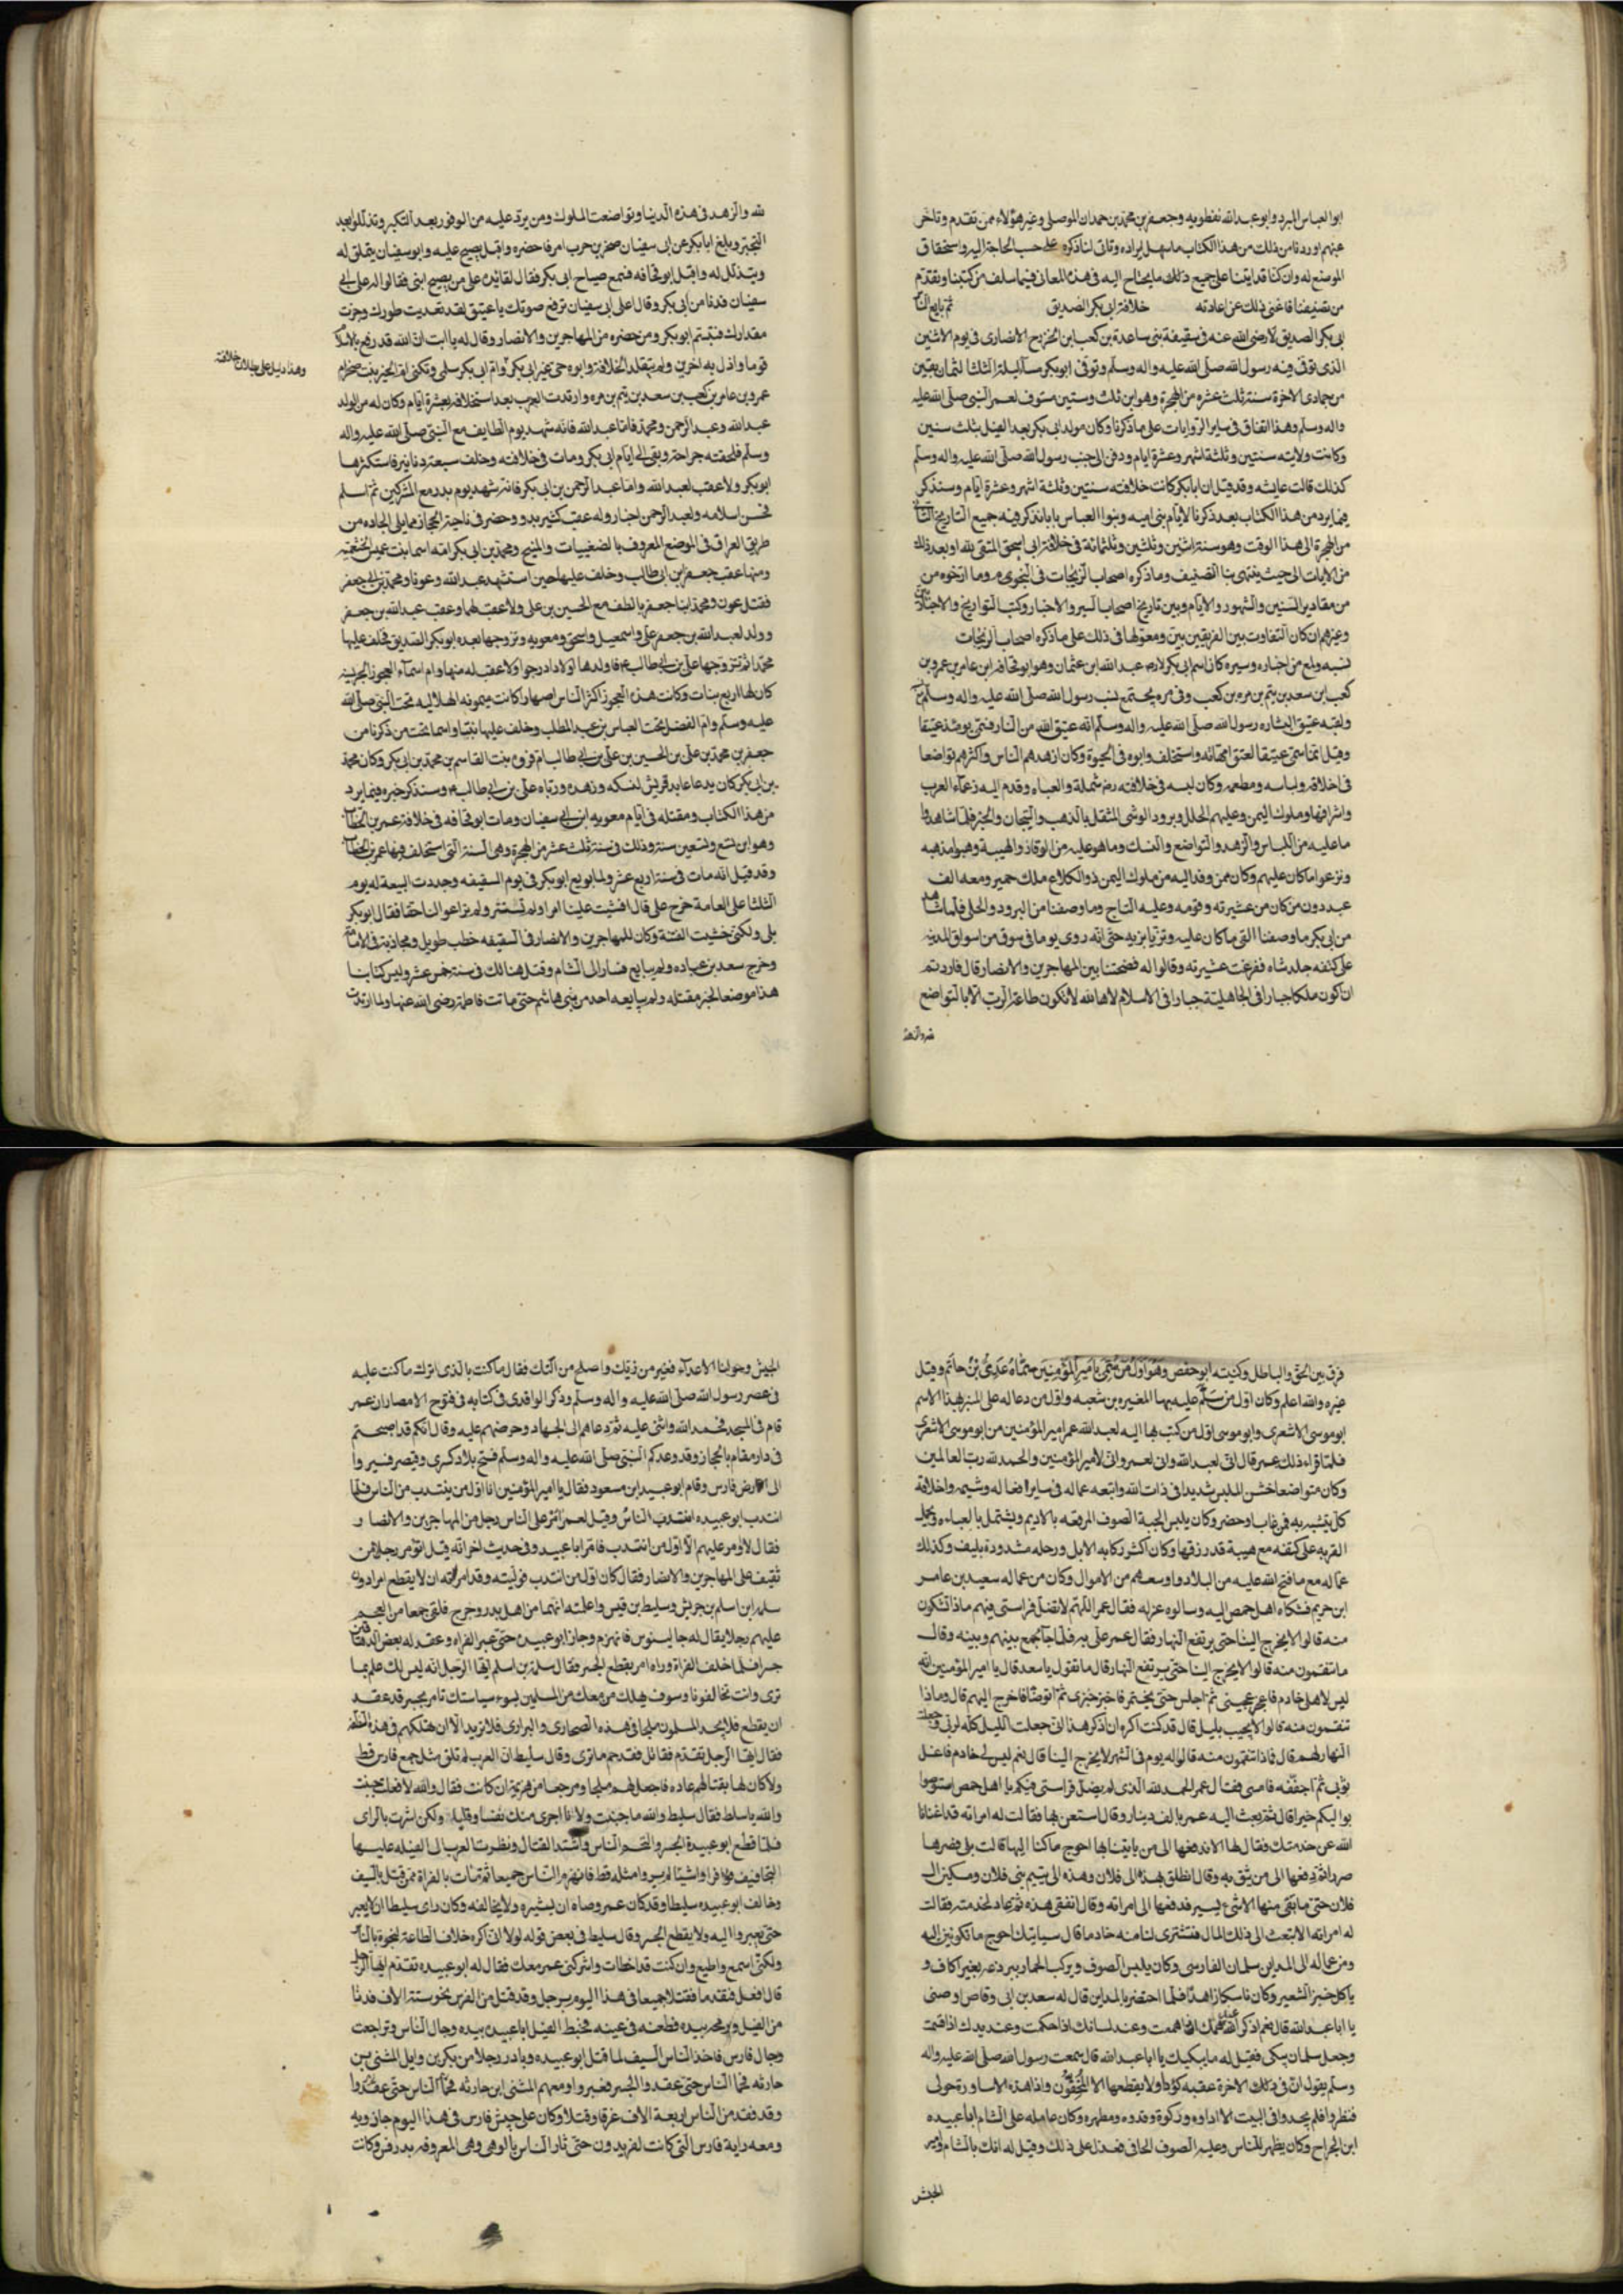 ابو العباس المبرد وابو عبد الله نفطويه وجعفر بن محمد بن حمدان الموصلى وغير هؤلاء ممن تقدم وتاخر
عنهم اوردنا من ذلك من هذا الكتاب ما سهل ايراده وتاتى لنا ذكره على حسب الحاجة اليه واستحقاق
الموضع له وان كنا قد اتينا على جميع ذلك ما يحتاج اليه فى هذه المعانى فيما سلف من كتبنا وتقدم
من تصنيفنا فاغنى ذلك عن اعادته خلافة ابى بكر الصديق ثم بايع الناس
ابى بكر الصديق رضى الله عنه فى سقيفة بنى ساعدة بن كعب ابن الخزرج الانصارى فى يوم الاثنين
الذى توفى فيه رسول الله صلى الله عليه واله وسلم وتوفى ابو بكر مساء ليلة الثلثا لثمان بقين
من جمادى الاخرة سنة ثلث عشره من الهجرة وهو ابن ثلث وستين مستوف لعمر النبى صلى الله عليه
واله وسلم وهذا اتفاق فى ساير الروايات على ما ذكرنا وكان مولد ابى بكر بعد الفيل بثلث سنين
وكانت ولايته سنتين وثلثة اشهر وعشرة ايام ودفن الى جنب رسول الله صلى الله عليه واله وسلم
كذلك قالت عايشه وقد قيل ان ابا بكر كانت خلافته سنتين وثلثة اشهر وعشرة ايام وسنذكر
فيما يرد من هذا الكتاب بعد ذكرنا لايام بنى اميه وبنو العباس بابا نذكر فيه جميع التاريخ الثانى
من الهجرة الى هذا الوقت وهو سنة اثنين وثلثين وثلثمائة فى خلافة ابى اسحق المتقى لله او بعد ذلك
من الاوقات الى حيث ينتهى بنا التصنيف وما ذكره اصحاب الزيجات فى النجوم وما ارخوه من
من مقادير السنين والشهور والايام وبين تاريخ اصحاب السير والاخبار وكتب التواريخ والاخباريين
وغيرهم ان كان التفاوت بين الفريقين بين ومعولها فى ذلك على ما ذكره اصحاب الزيجات
نسبه ولمع من اخباره وسيره كان اسم ابى بكر عبد الله ابن عثمان وهو ابو قحافة ابن عامر بن عمرو بن
كعب ابن سعد بن تيم بن مره بن كعب وفى مره يجتمع نسب رسول الله صلى الله عليه واله وسلم
ولقبه عتيق لبشاره رسول الله صلى الله عليه واله وسلم انه عتيق الله من النار فسمى يومئذ عتيقا
وقيل انما سمى عتيقا لعتق امهاته واستخلف وابوه فى الحيوة وكان ازهد الناس واكثرهم تواضعا
فى اخلاقه ولباسه ومطعمه وكان لبسه فى خلافته شملة والعباء وقدم اليه زعماء العرب
واشرافها وملوك اليمن وعليهم الحلل وبرود الوشى المثقل بالذهب والتيجان والحبر فلما شاهدوا
ما عليه من اللباس والزهد والتواضع والنسك وما هو عليه من الوقار والهيبة وهبوا مذهبه
ونزعوا ما كان عليهم وكان ممن وفد اليه من ملوك اليمن ذو الكلاع ملك حمير ومعه الف
عبد دون من كان من عشيرته وقومه وعليه التاج وما وصفنا من البرود والحلى فلما شاهد
من ابى بكر ما وصفنا القى ما كان عليه وتزيا بزيه حتى انه روى يوما فى سوق من اسواق المدينه
على كتفه جلد شاه ففزعت عشيرته وقالوا له فضحتنا بين المهاجرين والانصار قال فاردتم
ان اكون ملكا جبارا فى الجاهلية جبارا فى الاسلام لاها الله لا تكون طاعة الرب الا بالتواضع
لله والزهد فى هذه الدنيا وتواضعت الملوك ومن يرد عليه من الوفود بعد التكبر وتذللوا بعد
التجبر وبلغ ابا بكر عن ابى سفيان صخر بن حرب امر فاحضره واقبل يصيح عليه وابو سفيان يتملق له
ويتذلل له واقبل ابو قحافه فسمع صياح ابى بكر فقال لقائده على من يصيح ابنى فقالوا له على ابى
سفيان فدنا من ابى بكر وقال اعلى ابى سفيان ترفع صوتك يا عتيق لقد تعديت طورك وجزت
مقدارك فتبسم ابو بكر ومن حضره من المهاجرين والانصار وقال له يا ابت ان الله قد رفع بالاسلام
قوما واذل به اخرين ولم يتقلد الخلافة وابوه حى غير ابى بكر وام ابى بكر سلمى وتكنى ام الخير بنت صخر
وهذا دليل على بطلان خلافته
عمرو بن عامر بن كعب بن سعد بن تيم بن مره وارتدت العرب بعد استخلافه بعشرة ايام وكان له من الولد
عبد الله وعبد الرحمن ومحمد فاما عبد الله فانه شهد يوم الطايف مع النبى صلى الله عليه واله
وسلم فلحقته جراحة وبقى الى ايام ابى بكر ومات فى خلافته وخلف سبعة دنانير فاستكثرها
ابو بكر ولا عقب لعبد الله واما عبد الرحمن بن ابى بكر فانه شهد يوم بدر مع المشركين ثم اسلم
فحسن اسلامه ولعبد الرحمن اخبار وله عقب كثير بدو وحضر فى ناحية الحجاز مما يلى الجاده من
طريق العراق فى الموضع المعروف بالضغييات والمنيح ومحمد بن ابى بكر امه اسما بنت عميس الخثعميه
ومنها عقب جعفر ابن ابى طالب وخلف عليها حين استشهد عبد الله وعونا ومحمد بنى جعفر
فقتل عون ومحمد ابنا جعفر بالطف مع الحسين بن على ولا عقب لهما وعقب عبد الله بن جعفر
وولد لعبد الله بن جعفر على واسمعيل واسحق ومعويه وتزوجها بعده ابو بكر الصديق فخلف عليها
محمدا ثم تزوجها على بن ابى طالب فاولدها اولادا درجوا ولا عقب له منها وام اسماء العجوز الحربيه
كان لها اربع بنات وكانت هذه العجوز اكثر الناس اصهارا كانت ميمونه الهلاليه تحت النبى صلى الله
عليه وسلم وام الفضل تحت العباس بن عبد المطلب وخلف عليها واسما تحت من ذكرنا من
جعفر بن محمد بن على بن الحسين بن على بن ابى طالب ام فروه بنت القاسم بن محمد بن ابى بكر وكان محمد
بن ابى بكر كان يدعا عابد قريش لنسكه وزهده ورباه على بن ابى طالب وسنذكر خبره فيما يرد
من هذا الكتاب ومقتله فى ايام معويه ابن ابى سفيان ومات ابو قحافه فى خلافة عمر بن الخطاب
وهو ابن تسع وتسعين سنة وذلك فى سنة ثلث عشر من الهجرة وهى السنة التى استخلف فيها عمر بن الخطاب
وقد قيل انه مات فى سنة اربع عشر ولما بويع ابو بكر فى يوم السقيفه وجددت البيعة له يوم
الثلثا على العامة خرج على قال افسدت علينا امرنا ولم تستشر ولم تراعوا لنا حقا فقال ابو بكر
بلى ولكنى خشيت الفتنة وكان للمهاجرين والانصار فى السقيفه خطب طويل ومجاذبة فى الامامة
وخرج سعد بن عباده ولم يبايع فسار الى الشام وقتل هنالك فى سنة خمس عشر وليس كتابنا
هذا موضعا لخبر مقتله ولم يبايعه احد من بنى هاشم حتى ماتت فاطمة رضى الله عنها ولما ارتدت
فرق بين الحق والباطل وكنيته ابو حفص وهو اول من سمى بامير المؤمنين سماه عدى بن حاتم وقيل
غيره والله اعلم وكان اول من سلم عليه بها المغيره بن شعبه واول من دعا له على المنبر بهذا الاسم
ابو موسى الاشعرى وابو موسى اول من كتب بها اليه لعبد الله عمر امير المؤمنين من ابو موسى الاشعرى
فلما قراء ذلك عمر قال انى لعبد الله وانى لعمر وانى لامير المؤمنين والحمد لله رب العالمين
وكان متواضعا خشن الملبس شديدا فى ذات الله واتبعه عماله فى ساير افعاله وشيمه واخلاقه
كل يتشبه به فمن غاب او حضر وكان يلبس الجبة الصوف المرقعه بالاديم ويشتمل بالعباءه ويحمل
القربه على كتفه مع هيبة قد رزقها وكان اكثر ركابه الابل ورحله مشدودة بليف وكذلك
عماله مع ما فتح الله عليه من البلاد واوسعهم من الاموال وكان من عماله سعيد بن عامر
ابن حريم فشكاه اهل حمص اليه وسالوه عزله فقال عمر اللهم لا تفيل فراستى فيهم ماذا تشكون
منه قالوا لا يخرج الينا حتى يرتفع النهار فقال عمر على به فلما جاء جمع بينهم وبينه وقال
ما تنقمون منه قالوا لا يخرج الينا حتى يرتفع النهار قال ما تقول يا سعد قال يا امير المؤمنين انه
ليس لاهلى خادم فاعجن عجينى ثم اجلس حتى يختمر فاخبز خبزى ثم اتوضا فاخرج اليهم قال وماذا
تنقمون منه قالوا لا يجيب بليل قال قد كنت اكره ان اذكر هذا انى جعلت الليل كله لربى وجعلت
النهار لهم قال فماذا تنقمون منه قالوا له يوم فى الشهر لا يخرج الينا قال نعم ليس لى خادم فاغسل
ثوبى ثم اجففه فامسى فقال عمر الحمد لله الذى لم يضل فراستى فيكم يا اهل حمص استوصوا
بواليكم خيرا قال ثم بعث اليه عمر بالف دينار وقال استعن بها فقالت له امراته قد اغنانا
الله عن خدمتك فقال لها الا ندفعها الى من ياتينا بها احوج ما كنا اليها قالت بلى فصرها
صررا ثم دفعها الى من يثق به وقال انطلق بهذا الى فلان وهذه الى يتيم بنى فلان ومسكين ال
فلان حتى ما بقى منها الا شئ يسير فدفعها الى امراته وقال انفقى هذه ثم عاد لخدمته فقالت
له امراته الا تبعث الى ذلك المال فنشترى لنا منه خادما قال سياتيك احوج ما تكونين اليه
ومن عماله الى المداين سلمان الفارسى وكان يلبس الصوف ويركب الحمار ببردعه بغير اكاف و
ياكل خبز الشعير وكان ناسكا زاهدا فلما احتضر بالمداين قال له سعد بن ابى وقاص اوصنى
يا ابا عبد الله قال نعم اذكر الله عند همك اذا هممت وعند لسانك اذا حكمت وعند يدك اذا قسمت
وجعل سلمان يبكى فقيل له ما يبكيك يا ابا عبد الله قال سمعت رسول الله صلى الله عليه واله
وسلم يقول ان فى ذلك الاخرة عقبه كؤدا ولا يقطعها الا المخفون واذا هذه الاساورة حولى
فنظروا فلم يجدوا فى البيت الا اداوه وركوة وقدوه ومطهره وكان عامله على الشام ابا عبيده
ابن الجراح وكان يظهر للناس وعليه الصوف الجافى فعذل على ذلك وقيل له انك بالشام امير
الجيش
الجيش وحولنا الاعداء فغير من زيك واصلح من اثاثك فقال ما كنت بالذى اترك ما كنت عليه
فى عصر رسول الله صلى الله عليه واله وسلم وذكر الواقدى فى كتابه فى فتوح الامصار ان عمر
قام فى المسجد فحمد الله واثنى عليه ثم دعاهم الى الجهاد وحرضهم عليه وقال انكم قد اصبحتم
فى دار مقام بالحجاز وقد وعدكم النبى صلى الله عليه واله وسلم فتح بلاد كسرى وقيصر فسيروا
الى ارض فارس وقام ابو عبيد ابن مسعود فقال يا امير المؤمنين انا اول من ينتدب من الناس فلما
انتدب ابو عبيده انتدب الناس وقيل لعمر امر على الناس رجل من المهاجرين والانصار
فقال لاؤمر عليهم الا اول من انتدب فامر ابا عبيد وفى حديث اخر انه قيل له اتؤمر رجلا من
ثقيف على المهاجرين والانصار فقال كان اول من انتدب فوليته وقد امرته ان لا يقطع امرا دون
سلمه ابن اسلم بن حريش وسليط بن قيس واعلمته انهما من اهل بدر وخرج فلقى جمعا من العجم
عليهم رجلا يقال له جالينوس فانهزم وجاز ابو عبيد حتى عبر الفراه وعقد له بعض الدهاقين
جسرا فلما خلف الفراة وراه امر بقطع الجسر فقال سلمة بن اسلم ايها الرجل انه ليس لك علم بما
ترى وانت تخالفونا وسوف يهلك من معك من المسلمين بسوء سياستك تامر بجسر قد عقد
ان يقطع فلا يجد المسلمون ملجا فى هذه الصحارى والبرارى فلا تريد الا ان تهلكهم فى هذه القطعة
فقال ايها الرجل تقدم فقاتل فقد حم ما ترى وقال سليط ان العرب لم تلق مثل جمع فارس قط
ولا كان لها بقتالهم عاده فاجعل لهم ملجا ومرجعا من هزيمة ان كانت فقال والله لا فعلت جبنت
والله يا سليط فقال سليط والله ما جبنت ولانا اجرى منك نفسا وقلبا ولكن اشرت بالراى
فلما قطع ابو عبيدة الجسر والتقم الناس واشتد القتال ونظرت العرب الى الفيله عليها
التجافيف فراوا شيئا لم يروا مثله قط فانهزم الناس جميعا ثم مات بالفراة ممن قتل بالسيف
وخالف ابو عبيده سليطا وقد كان عمر وصاه ان يستشيره ولا يخالفه وكان راى سليط ان لا يعبر
حتى يعبروا اليه ولا يقطع الجسر وقال سليط فى بعض قوله لولا انى اكره خلاف الطاعة لنجوة بالناس
ولكنى اسمع واطيع وان كنت قد اخطات واشركنى عمر معك فقال له ابو عبيده تقدم ايها الرجل
قال افعل فتقدما فقتلا جميعا فى هذا اليوم وقد قتل من الفرس نحو ستة الاف فدنا
من الفيل ورمحه بيده فطعنه فى عينه فخبط الفيل ابا عبيد بيده وجال الناس وتراجعت
وجال فارس فاخذ الناس السيف لما قتل ابو عبيده وبادر رجلا من بكر بن وايل المثنى بن
حارثه فحما الناس حتى عقدوا الجسر فعبروا ومعهم المثنى ابن حارثه فحما الناس حتى عقدوا
وقد فقد من الناس اربعة الاف غرقا وقتلا وكان على جيش فارس فى هذا اليوم جازويه
ومعه راية فارس التى كانت لفريدون حتى ثار الناس بالوهى وهى المعروفه بدرفس وكانت